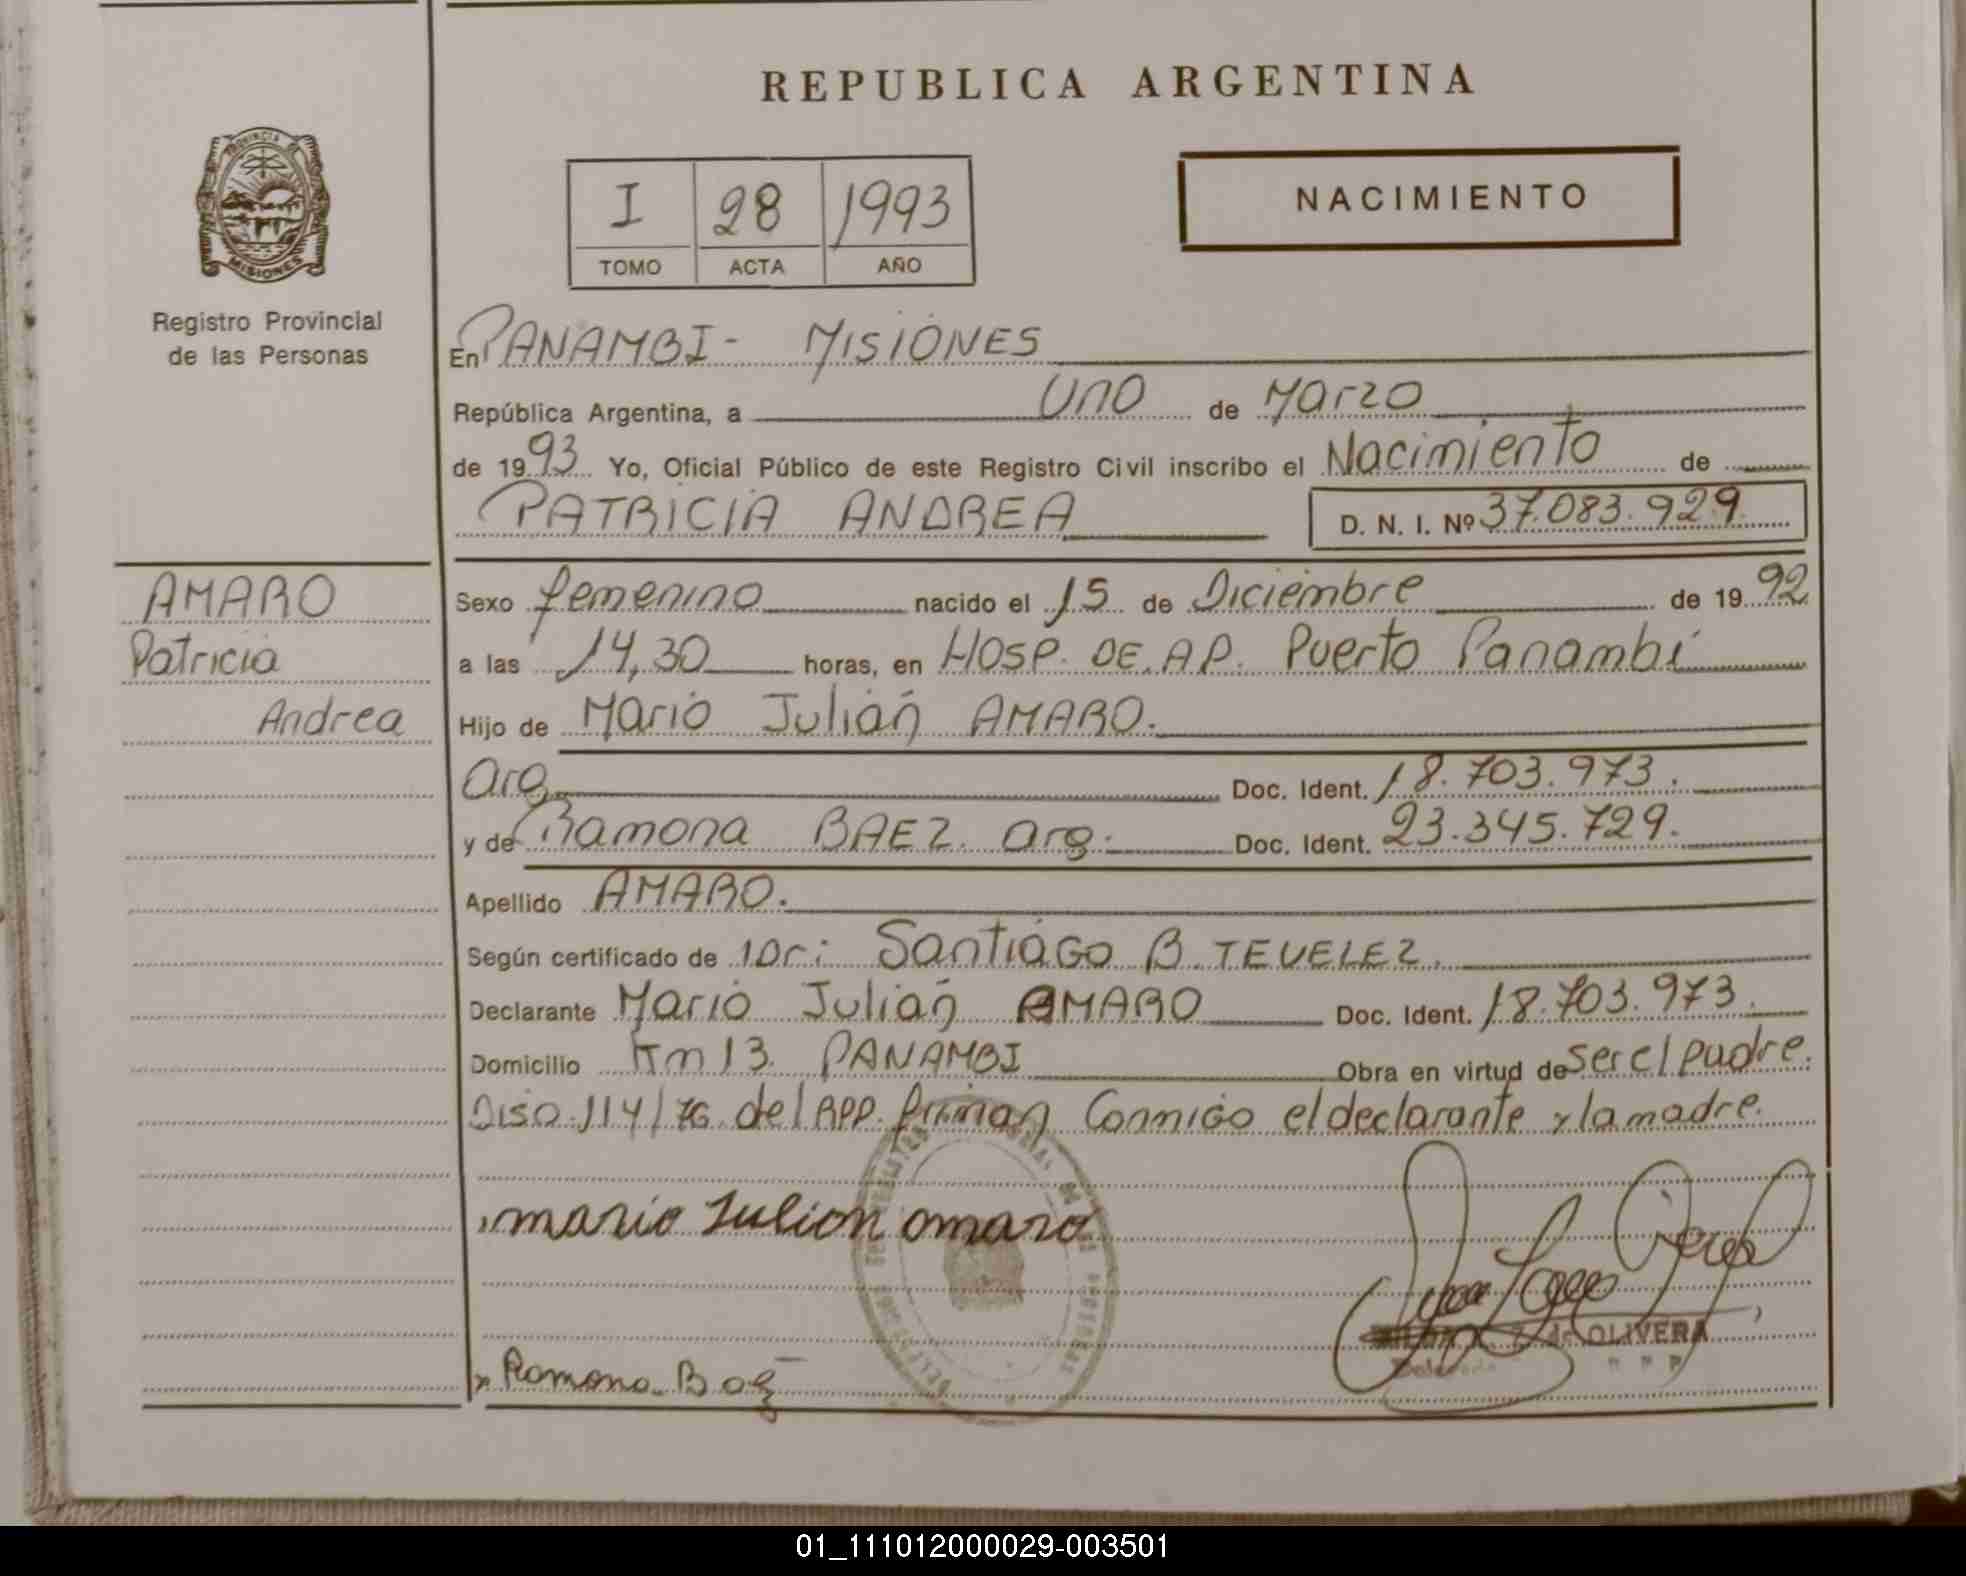 REPUBLICA ARGENTINA
PROVINCIA DE
MISIONES
Registro Provincial
de las Personas
I 28 1993
TOMO ACTA AÑO
NACIMIENTO
En PANAMBI- MISIONES
República Argentina, a Uno de Marzo
de 1993 Yo, Oficial Público de este Registro Civil inscribo el Nacimiento de
PATRICIA ANDREA D. N. I. Nº 37.083.929
AMARO
Patricia
Andrea
Sexo femenino nacido el 15 de Diciembre de 1992
a las 14,30 horas, en HOSP. DE.A.P. Puerto Panambí
Hijo de Mario Julián AMARO.
Arg. Doc. Ident. 18.703.973.
y de Ramona BAEZ. Arg. Doc. Ident. 23.345.729.
Apellido AMARO.
Según certificado de Dr: Santiago B. TEVELEZ.
Declarante Mario Julián AMARO Doc. Ident. 18.703.973.
Domicilio Km 13. PANAMBI Obra en virtud de ser el padre.
114/76. del RPP. firman Conmigo el declarante y la madre.
mario Julion amaro
de OLIVERA
Ramona Baez
01_111012000029-003501